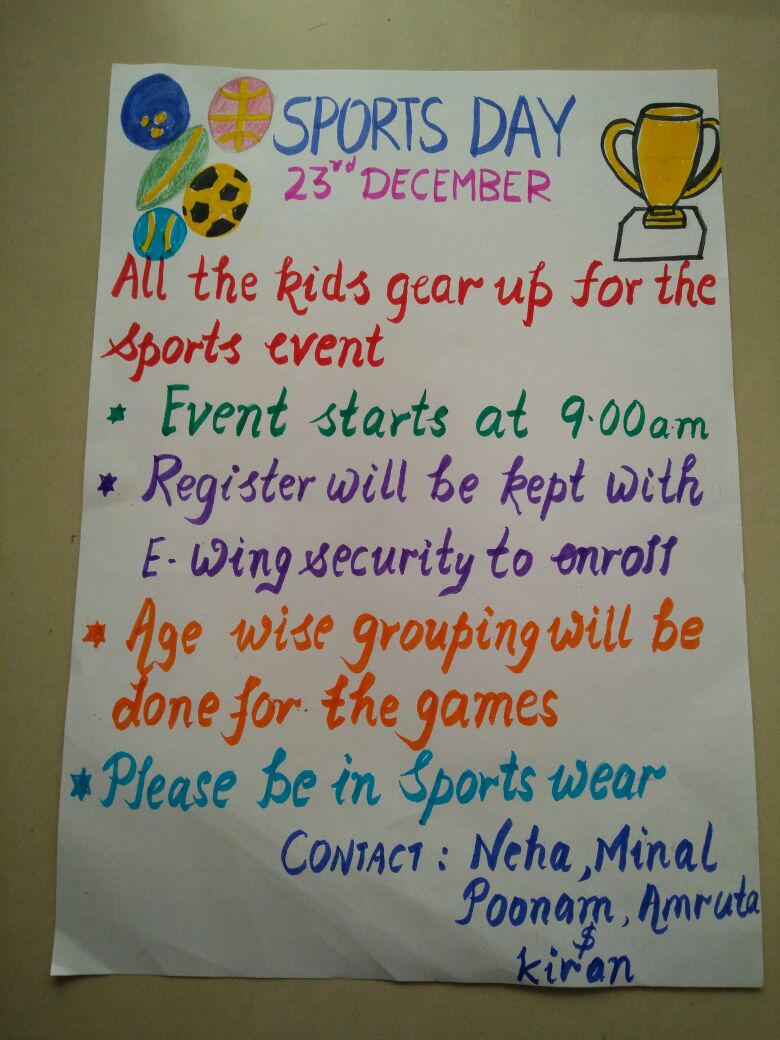 SPORTS DAY
23rd DECEMBER
All the kids gear up for the
sports event
* Event starts at 9.00am
* Register will be kept with
E-Wing security to enroll
* Age wise grouping will be
done for the games
* Please be in Sports wear
CONTACT : Neha, Minal
Poonam, Amruta
$
kiran